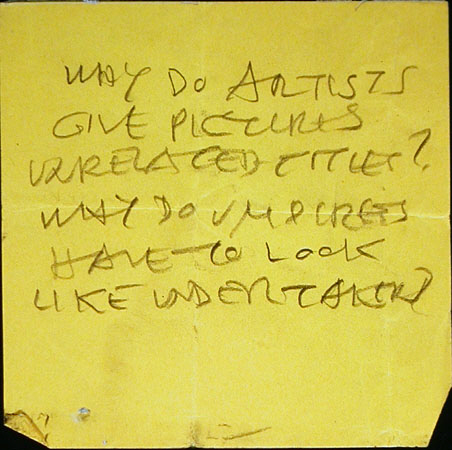 WHY DO ARTISTS
GIVE PICTURES
UNRELATED TITLES?
WHY DO UMPIRES
HAVE TO LOOK
LIKE UNDERTAKERS?